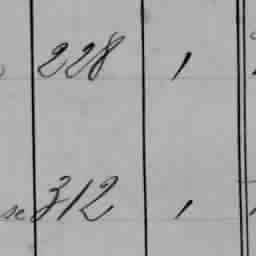 228 1
se 312 1